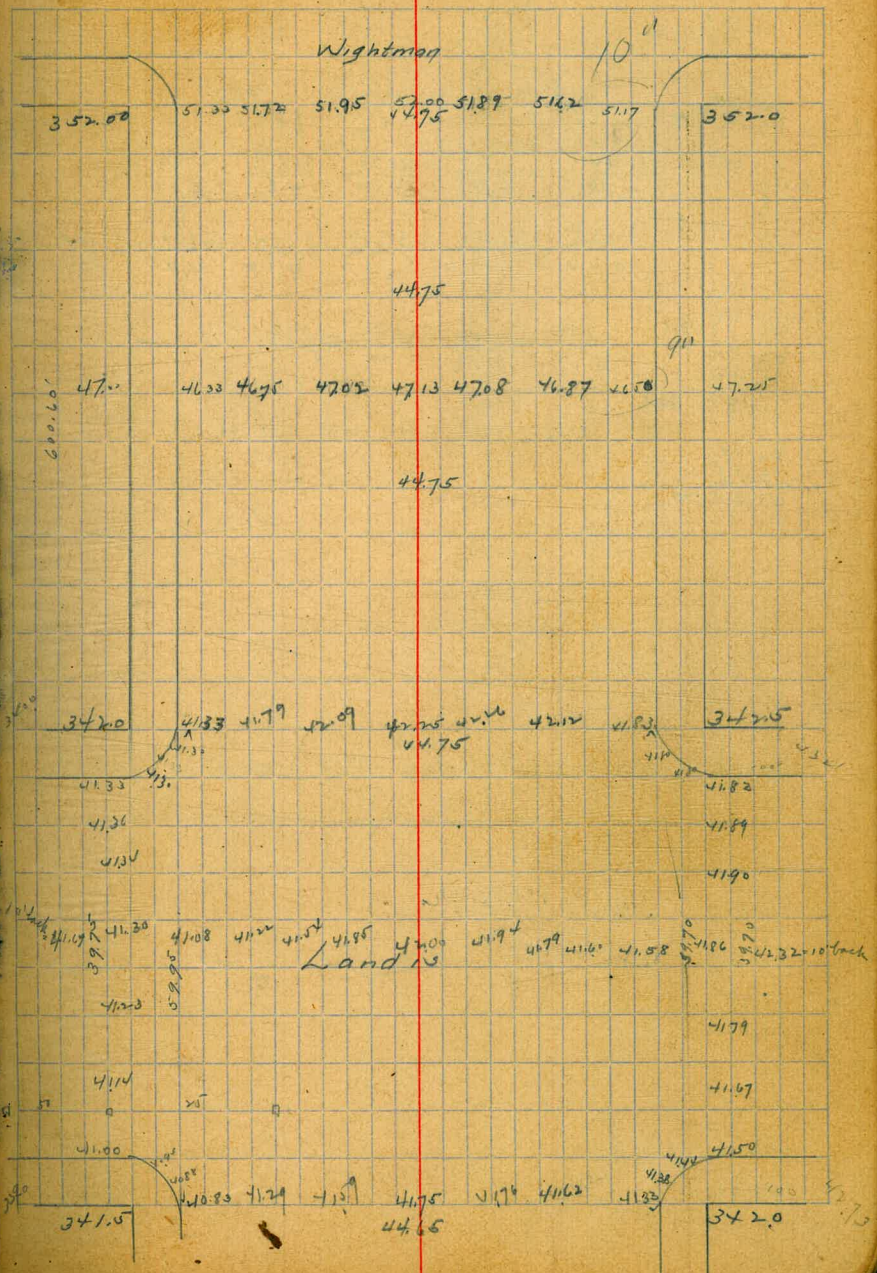 Wightman 10"
352.00 51.33 51.72 51.95 52.00 51.89 51.17 352.0
44.75
44.75
9"
47.00 46.33 46.75 47.02 47.13 47.08 46.87 46.50 47.25
600.60'
44.75
342.0 41.33 41.79 42.09 42.25 42.12 41.83 342.5
44.75
41.33 41.82
41.36 41.89
41.34 41.90
41.69 39.75 41.30 41.08 41.22 41.54 41.85 42.00 41.94 41.79 41.58 39.70 41.86 39.70 42.32 10' back
Landis
39.95
41.23 41.79
41.14 41.67
50 25
41.00 41.44 41.50
41.38
40.83 41.29 41.75 41.62 41.33
341.5 342.0